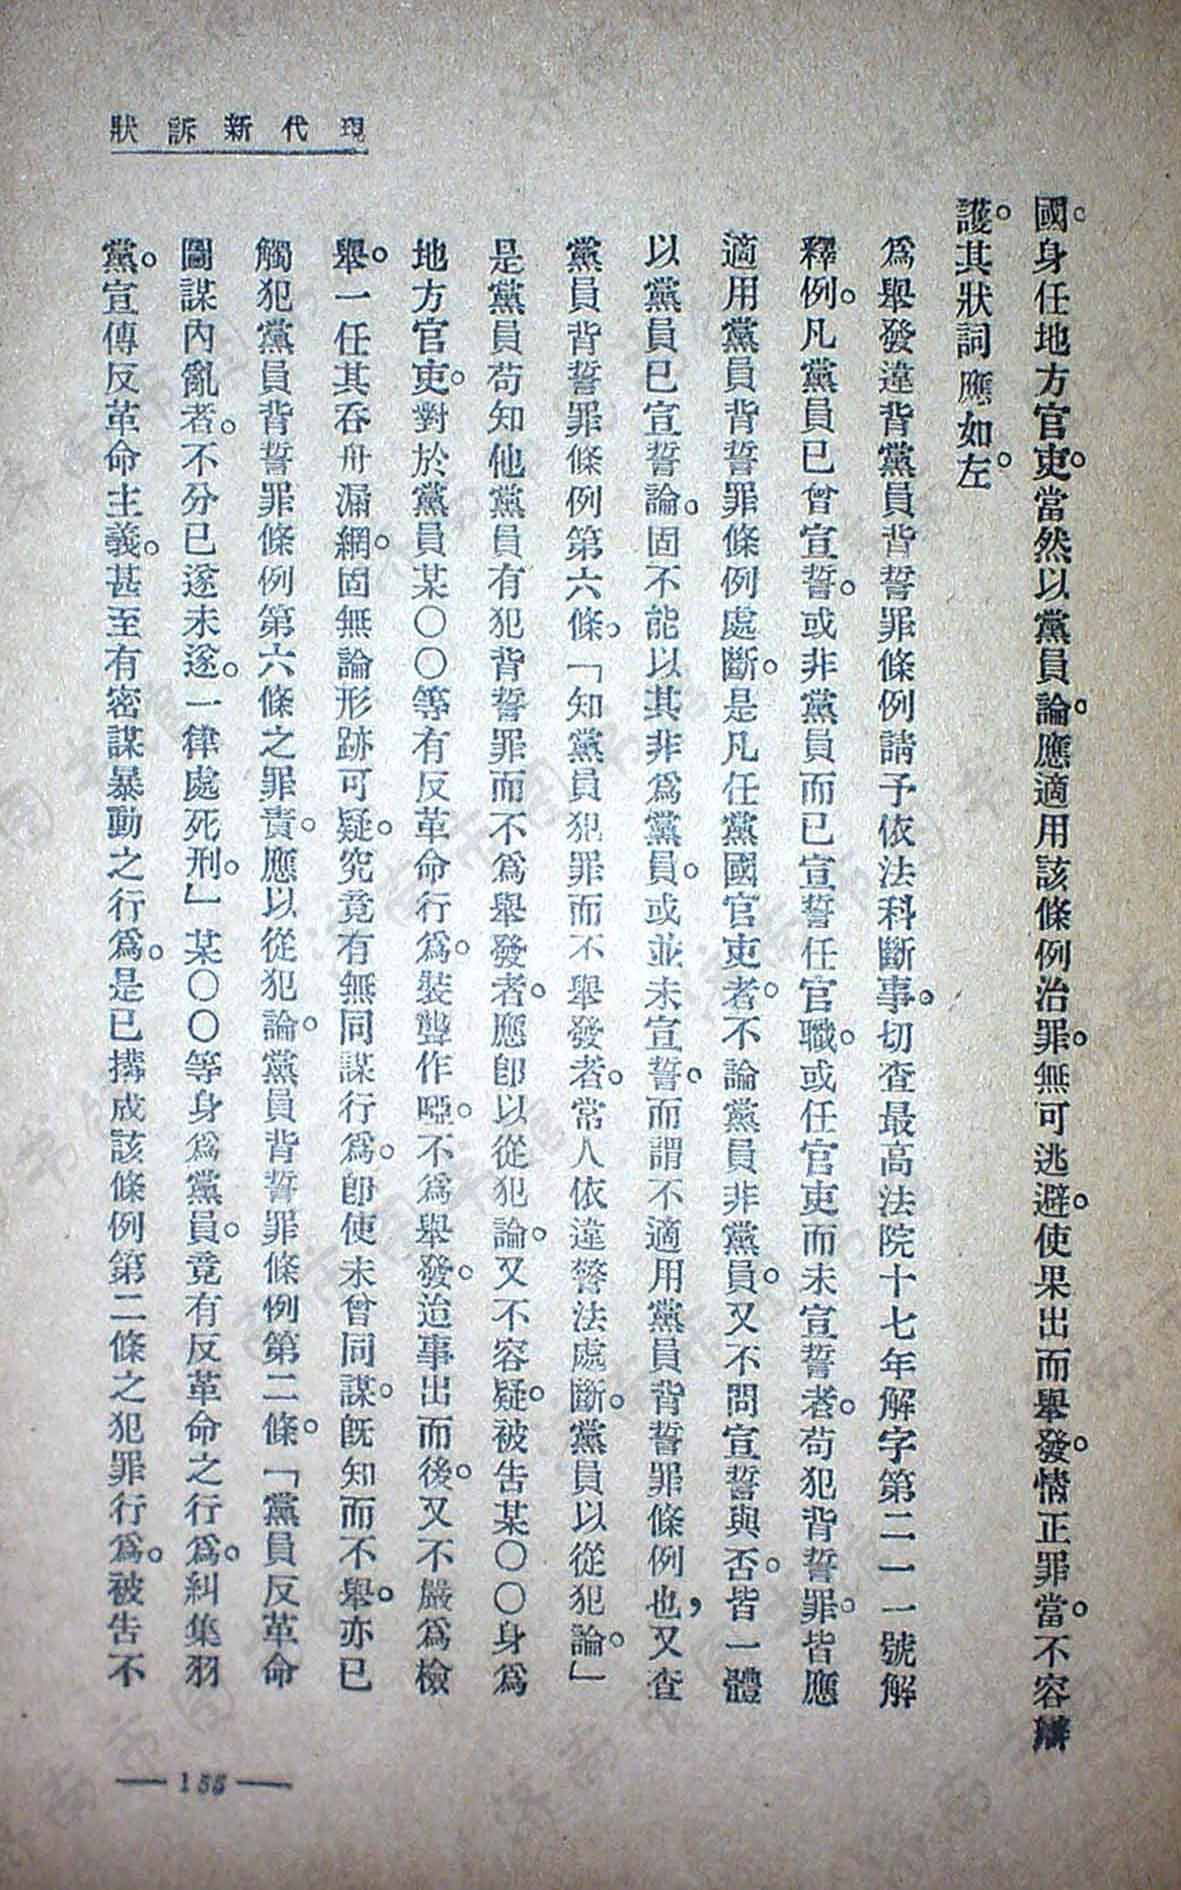 現代新訴狀
國。身任地方官吏。當然以黨員論。應適用該條例治罪。無可逃避。使果出而舉發。情正罪當。不容辯
護。其狀詞應如左。
爲舉發違背黨員背誓罪條例請予依法科斷事。切查最高法院十七年解字第二一一號解
釋例。凡黨員已曾宣誓。或非黨員而已宣誓任官職。或任官吏而未宣誓者。苟犯背誓罪。皆應
適用黨員背誓罪條例處斷。是凡任黨國官吏者。不論黨員非黨員。又不問宣誓與否。皆一體
以黨員已宣誓論。固不能以其非爲黨員。或並未宣誓。而謂不適用黨員背誓罪條例也，又查
黨員背誓罪條例第六條。「知黨員犯罪而不舉發者。常人依違警法處斷。黨員以從犯論。」
是黨員苟知他黨員有犯背誓罪而不爲舉發者。應卽以從犯論。又不容疑。被告某〇〇身爲
地方官吏。對於黨員某〇〇等有反革命行爲。裝聾作啞。不爲舉發。迨事出而後。又不嚴爲檢
舉。一任其吞舟漏網。固無論形跡可疑。究竟有無同謀行爲。卽使未曾同謀。旣知而不舉。亦已
觸犯黨員背誓罪條例第六條之罪責。應以從犯論。黨員背誓罪條例第二條。「黨員反革命
圖謀內亂者。不分已遂未遂。一律處死刑。」某〇〇等身爲黨員。竟有反革命之行爲。糾集羽
黨。宣傳反革命主義。甚至有密謀暴動之行爲。是已搆成該條例第二條之犯罪行爲。被告不
— 155 —